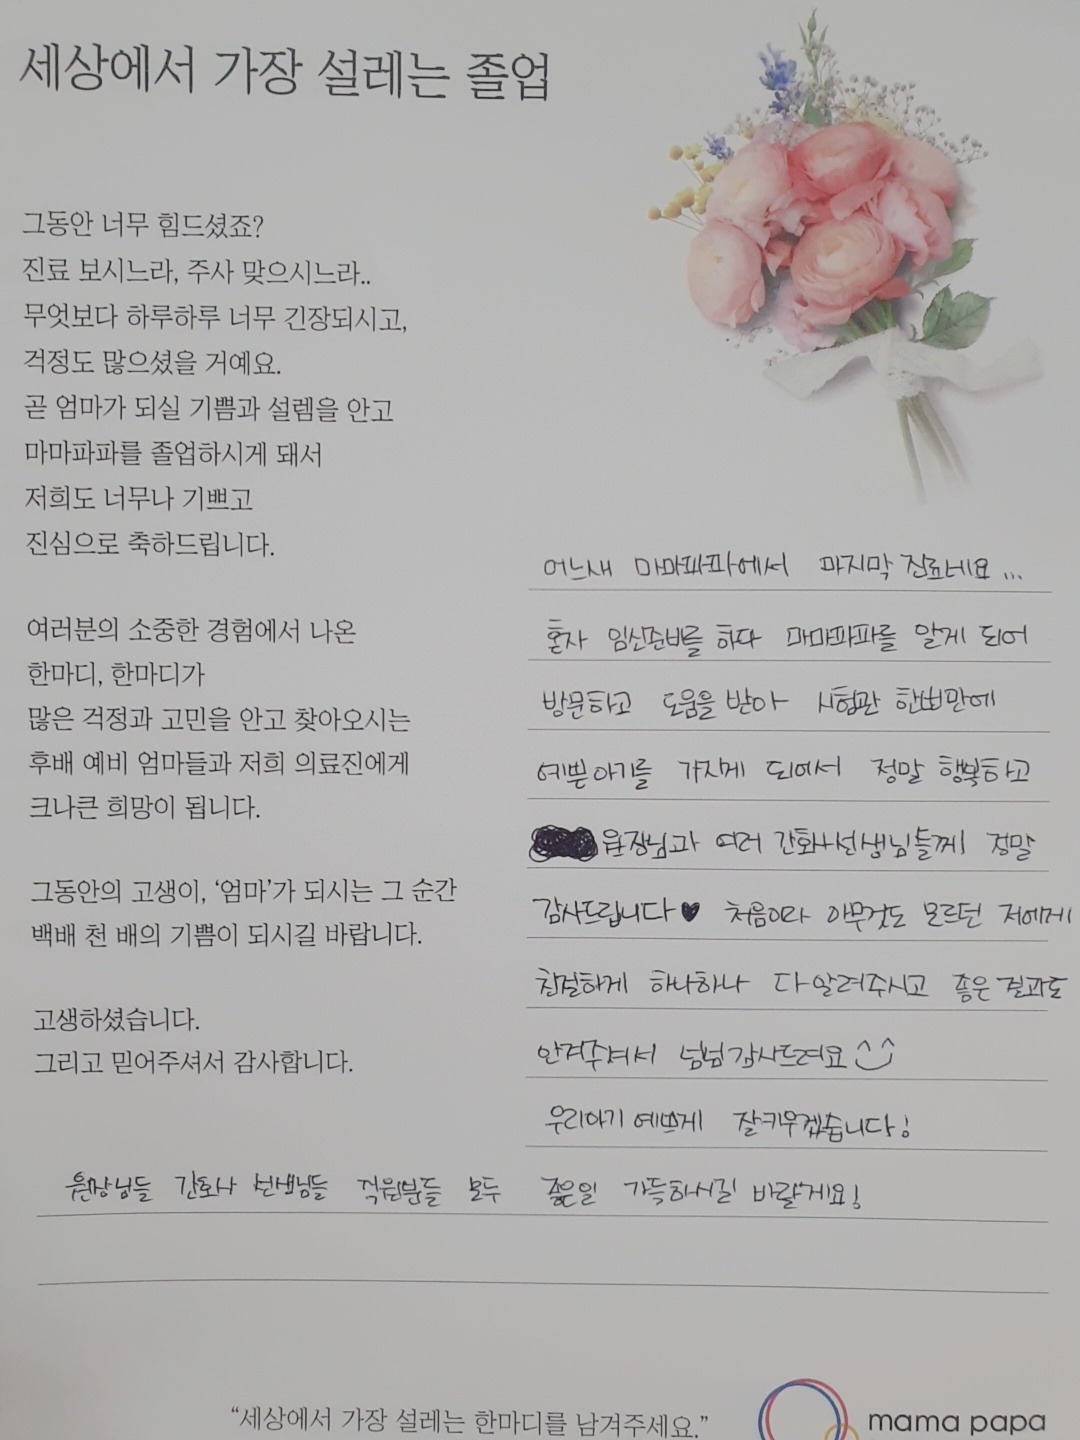 세상에서 가장 설레는 졸업
그동안 너무 힘드셨죠?
진료 보시느라, 주사 맞으시느라..
무엇보다 하루하루 너무 긴장되시고,
걱정도 많으셨을 거예요.
곧 엄마가 되실 기쁨과 설렘을 안고
마마파파를 졸업하시게 돼서
저희도 너무나 기쁘고
진심으로 축하드립니다.
여러분의 소중한 경험에서 나온
한마디, 한마디가
많은 걱정과 고민을 안고 찾아오시는
후배 예비 엄마들과 저희 의료진에게
크나큰 희망이 됩니다.
그동안의 고생이, ‘엄마’가 되시는 그 순간
백배 천 배의 기쁨이 되시길 바랍니다.
고생하셨습니다.
그리고 믿어주셔서 감사합니다.
어느새 마마파파에서 마지막 진료네요...
혼자 임신준비를 하다 마마파파를 알게 되어
방문하고 도움을 받아 시험관 한번만에
예쁜아기를 가지게 되어서 정말 행복하고
원장님과 여러 간호사선생님들께 정말
감사드립니다♥ 처음이라 아무것도 모르던 저에게
친절하게 하나하나 다 알려주시고 좋은 결과도
안겨주셔서 넘넘감사드려요^^
우리아기 예쁘게 잘키우겠습니다!
원장님들 간호사 선생님들 직원분들 모두 좋은일 가득하시길 바랄게요!
“세상에서 가장 설레는 한마디를 남겨주세요.”
mama papa